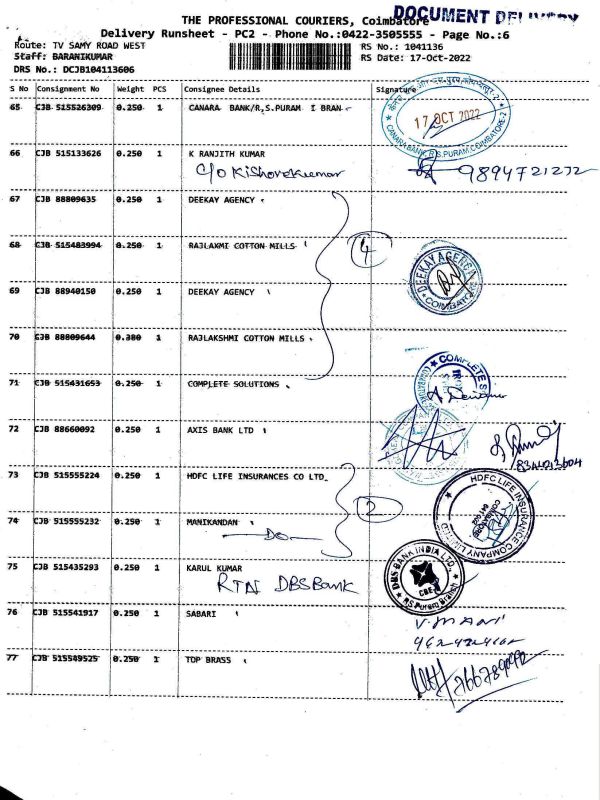 THE PROFESSIONAL COURIERS, Coimbatore
DOCUMENT DELIVERY
Delivery Runsheet - PC2 - Phone No.:0422-3505555 - Page No.:6
Route: TV SAMY ROAD WEST
RS No.: 1041136
Staff: BARANIKUMAR
RS Date: 17-Oct-2022
DRS No.: DCJB104113606
S No Consignment No Weight PCS Consignee Details Signature
65 CJB 515526309 0.250 1 CANARA BANK/R.S.PURAM I BRAN
17 OCT 2022
CANARA BANK, R.S.PURAM, COIMBATORE-2
66 CJB 515133626 0.250 1 K RANJITH KUMAR
C/o Kishorekumar
9894721272
67 CJB 88809635 0.250 1 DEEKAY AGENCY
68 CJB 515483994 0.250 1 RAJLAXMI COTTON MILLS
4
DEEKAY AGENCY
COIMBATORE
69 CJB 88940150 0.250 1 DEEKAY AGENCY
70 CJB 88809644 0.380 1 RAJLAKSHMI COTTON MILLS
71 CJB 515431653 0.250 1 COMPLETE SOLUTIONS
COMPLETE
72 CJB 88660092 0.250 1 AXIS BANK LTD
73 CJB 515555224 0.250 1 HDFC LIFE INSURANCES CO LTD
HDFC LIFE INSURANCE COMPANY LIMITED
COIMBATORE
2
74 CJB 515555232 0.250 1 MANIKANDAN
Do
75 CJB 515435293 0.250 1 KARUL KUMAR
RTN DBS Bank
DBS BANK INDIA LTD.
CBE
R.S. Puram Branch
76 CJB 515541917 0.250 1 SABARI
V. Mani
77 CJB 515549525 0.250 1 TOP BRASS